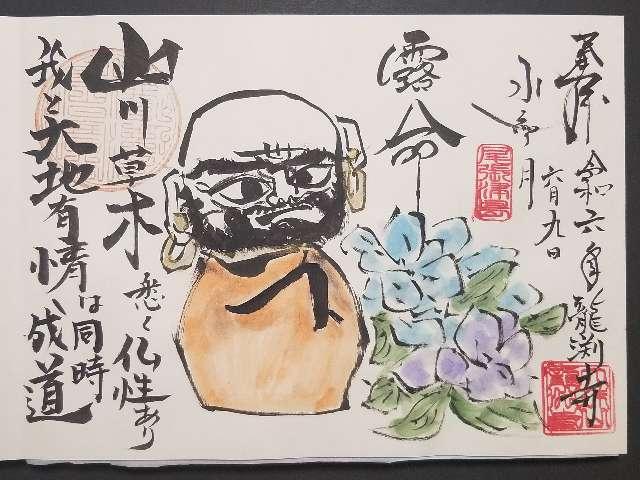 奉拝 令和六年 龍渕寺
水無月
六月九日
尾張津島
露命
山川草木
悉く仏性あり
我と大地有情は同時
成道